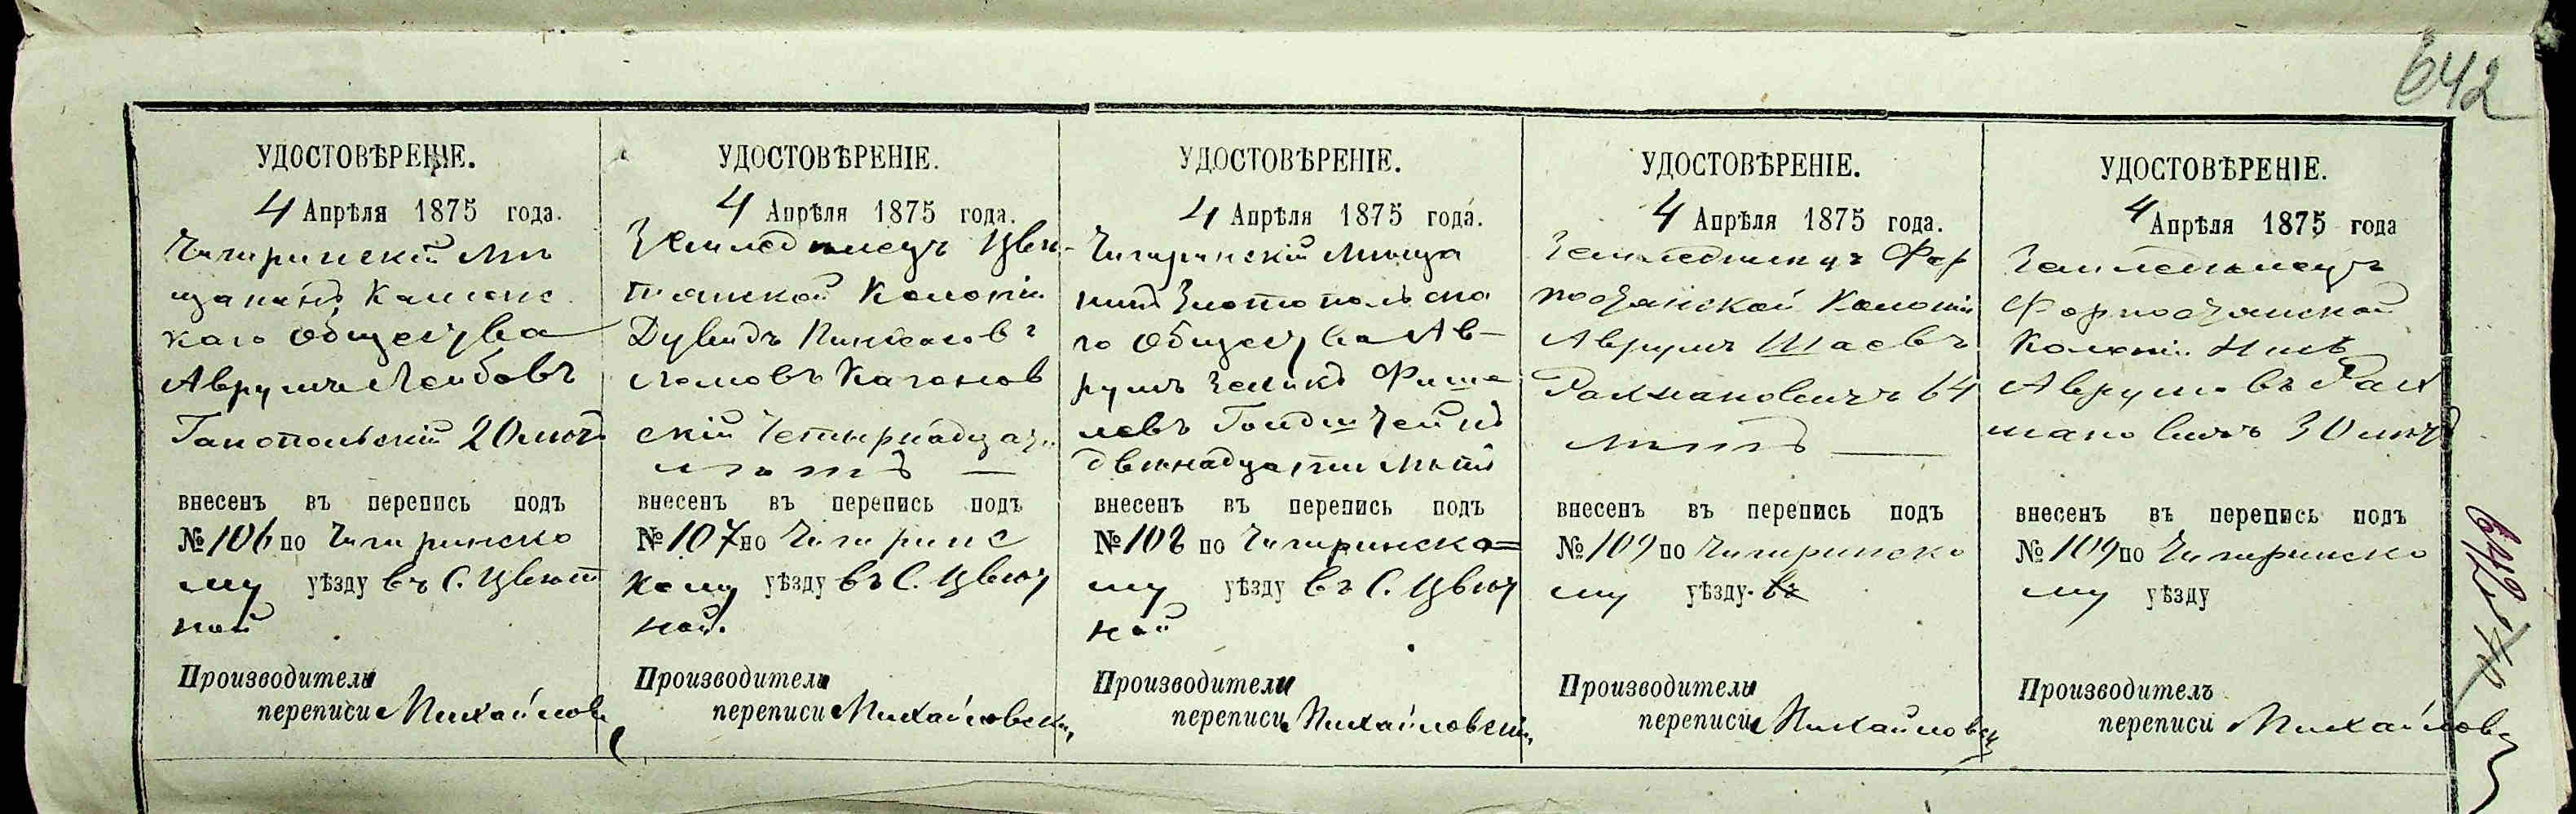 642
УДОСТОВѢРЕНІЕ.
4 Апрѣля 1875 года.
Чигиринскій мѣ
щанинъ Каменс
каго общества
Аврумъ Лейбовъ
Ганопольскій 20 лѣтъ
внесенъ въ перепись подъ
№ 106 по Чигиринско
му уѣзду въ С. Цвѣт
ной
Производитель
переписи Михайловс
УДОСТОВѢРЕНІЕ.
4 Апрѣля 1875 года.
Земледѣлецъ Цвѣ-
тнянской Колоніи
Дувидъ Пинхасовъ
Каганов
скій четырнадцати
лѣтъ —
внесенъ въ перепись подъ
№ 107 по Чигиринс
кому уѣзду въ С. Цвѣт
ной.
Производитель
переписи Михайловскій
УДОСТОВѢРЕНІЕ.
4 Апрѣля 1875 года.
Чигиринскій мѣща
нинъ Златопольска
го общества Ав-
румъ Зеликъ Фише
левъ Гольдштейнъ
двѣнадцати лѣтъ
внесенъ въ перепись подъ
№ 108 по Чигиринско=
му уѣзду въ С. Цвѣт
ной
Производитель
переписи Михайловскій
УДОСТОВѢРЕНІЕ.
4 Апрѣля 1875 года.
Земледѣлецъ Фор
подзянской Колоніи
Аврумъ Шаевъ
Рахмановичъ 64
лѣтъ —
внесенъ въ перепись подъ
№ 109 по Чигиринско
му уѣзду въ
Производитель
переписи Михайловск
УДОСТОВѢРЕНІЕ.
4 Апрѣля 1875 года
Земледѣлецъ
Форподзянской
Колоніи
Аврумовъ Рах
мановичъ 30 лѣтъ
внесенъ въ перепись подъ
№ 109 по Чигиринско
му уѣзду
Производитель
переписи Михайловс